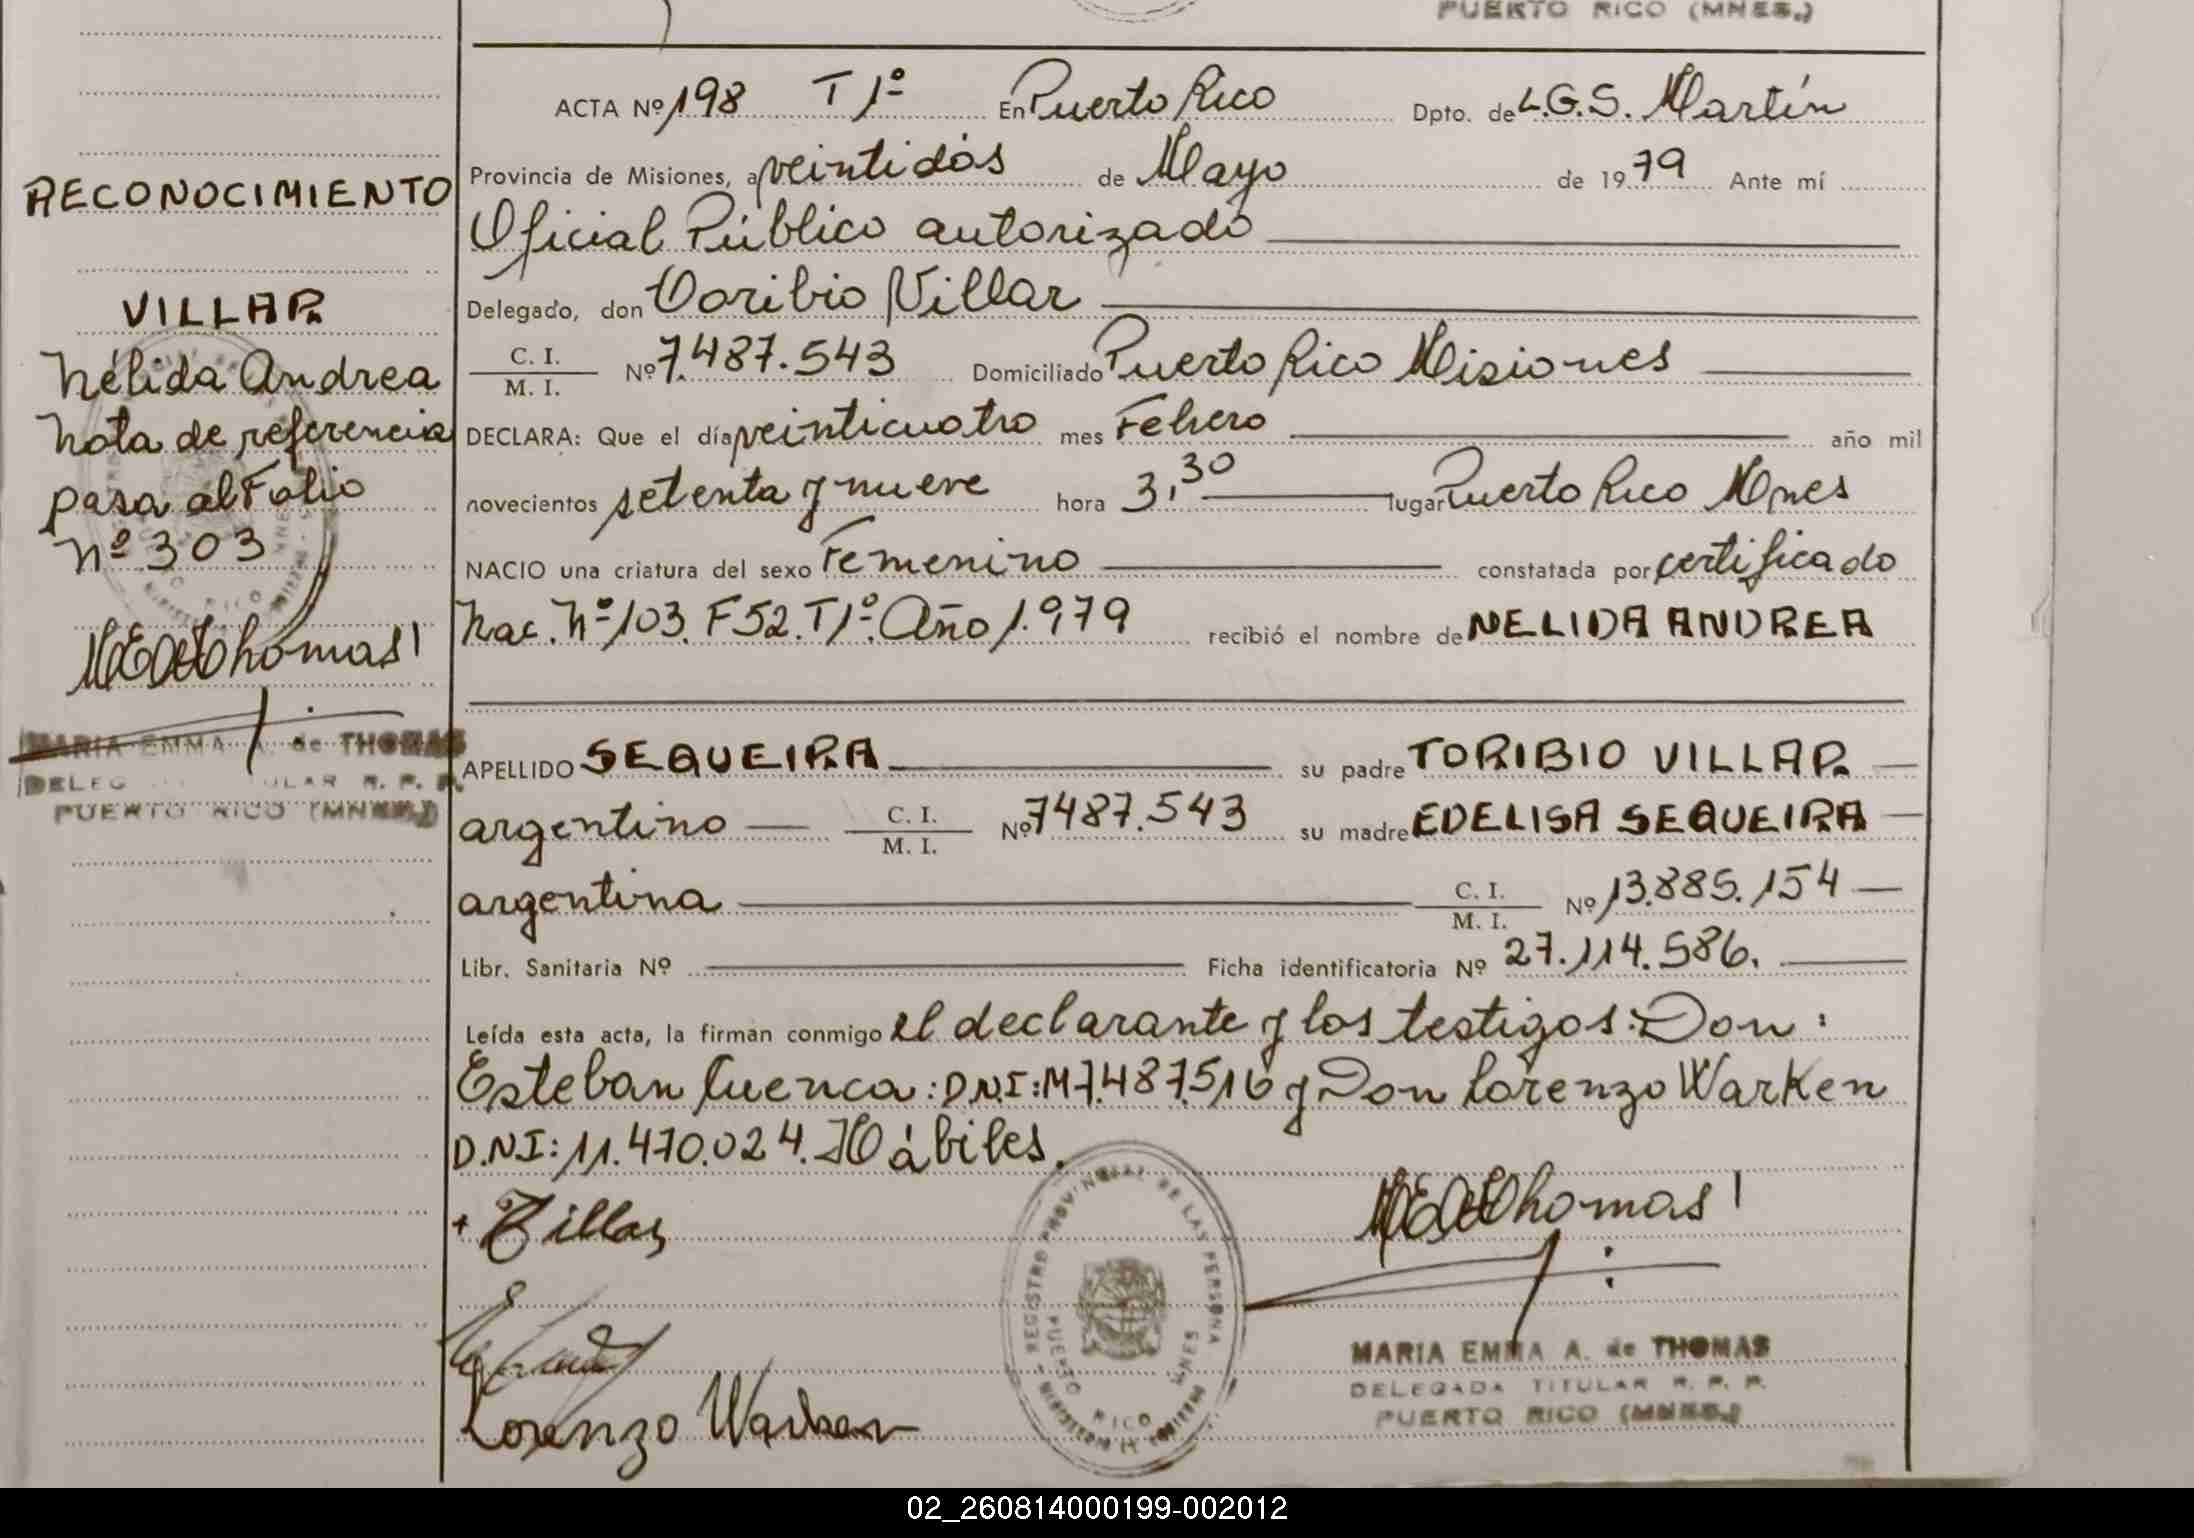 PUERTO RICO (MNES.)
ACTA Nº 198 T 1º En Puerto Rico Dpto. de L.G.S. Martín
Provincia de Misiones, a veintidós de Mayo de 1979 Ante mí
Oficial Público autorizado
Delegado, don Toribio Villar
C. I.
M. I. Nº 7.487.543 Domiciliado Puerto Rico Misiones
DECLARA: Que el día veinticuatro mes Febrero año mil
novecientos setenta y nueve hora 3,30 lugar Puerto Rico Mnes
NACIO una criatura del sexo Femenino constatada por certificado
Nac. Nº 103. F 52. T 1º. Año 1.979 recibió el nombre de NELIDA ANDREA
APELLIDO SEQUEIRA su padre TORIBIO VILLAR
argentino C. I.
M. I. Nº 7487.543 su madre EDELISA SEQUEIRA
argentina C. I.
M. I. Nº 13.885.154
Libr. Sanitaria Nº Ficha identificatoria Nº 27.114.586.
Leída esta acta, la firman conmigo el declarante y los testigos: Don:
Esteban Cuenca: D.N.I: M7.487.516 y Don Lorenzo Warken
D.N.I: 11.470.024. Hábiles.
+ Villar
Lorenzo Warken
MEdeThomas
MARIA EMMA A. de THOMAS
DELEGADA TITULAR R. P. P.
PUERTO RICO (MNES.)
REGISTRO PROVINCIAL DE LAS PERSONAS
PUERTO RICO MNES
RECONOCIMIENTO
VILLAR
Nélida Andrea
Nota de referencia
pasa al Folio
Nº 303
MEdeThomas
MARIA EMMA A. de THOMAS
DELEG ULAR R. P. P.
PUERTO RICO (MNES.)
02_260814000199-002012